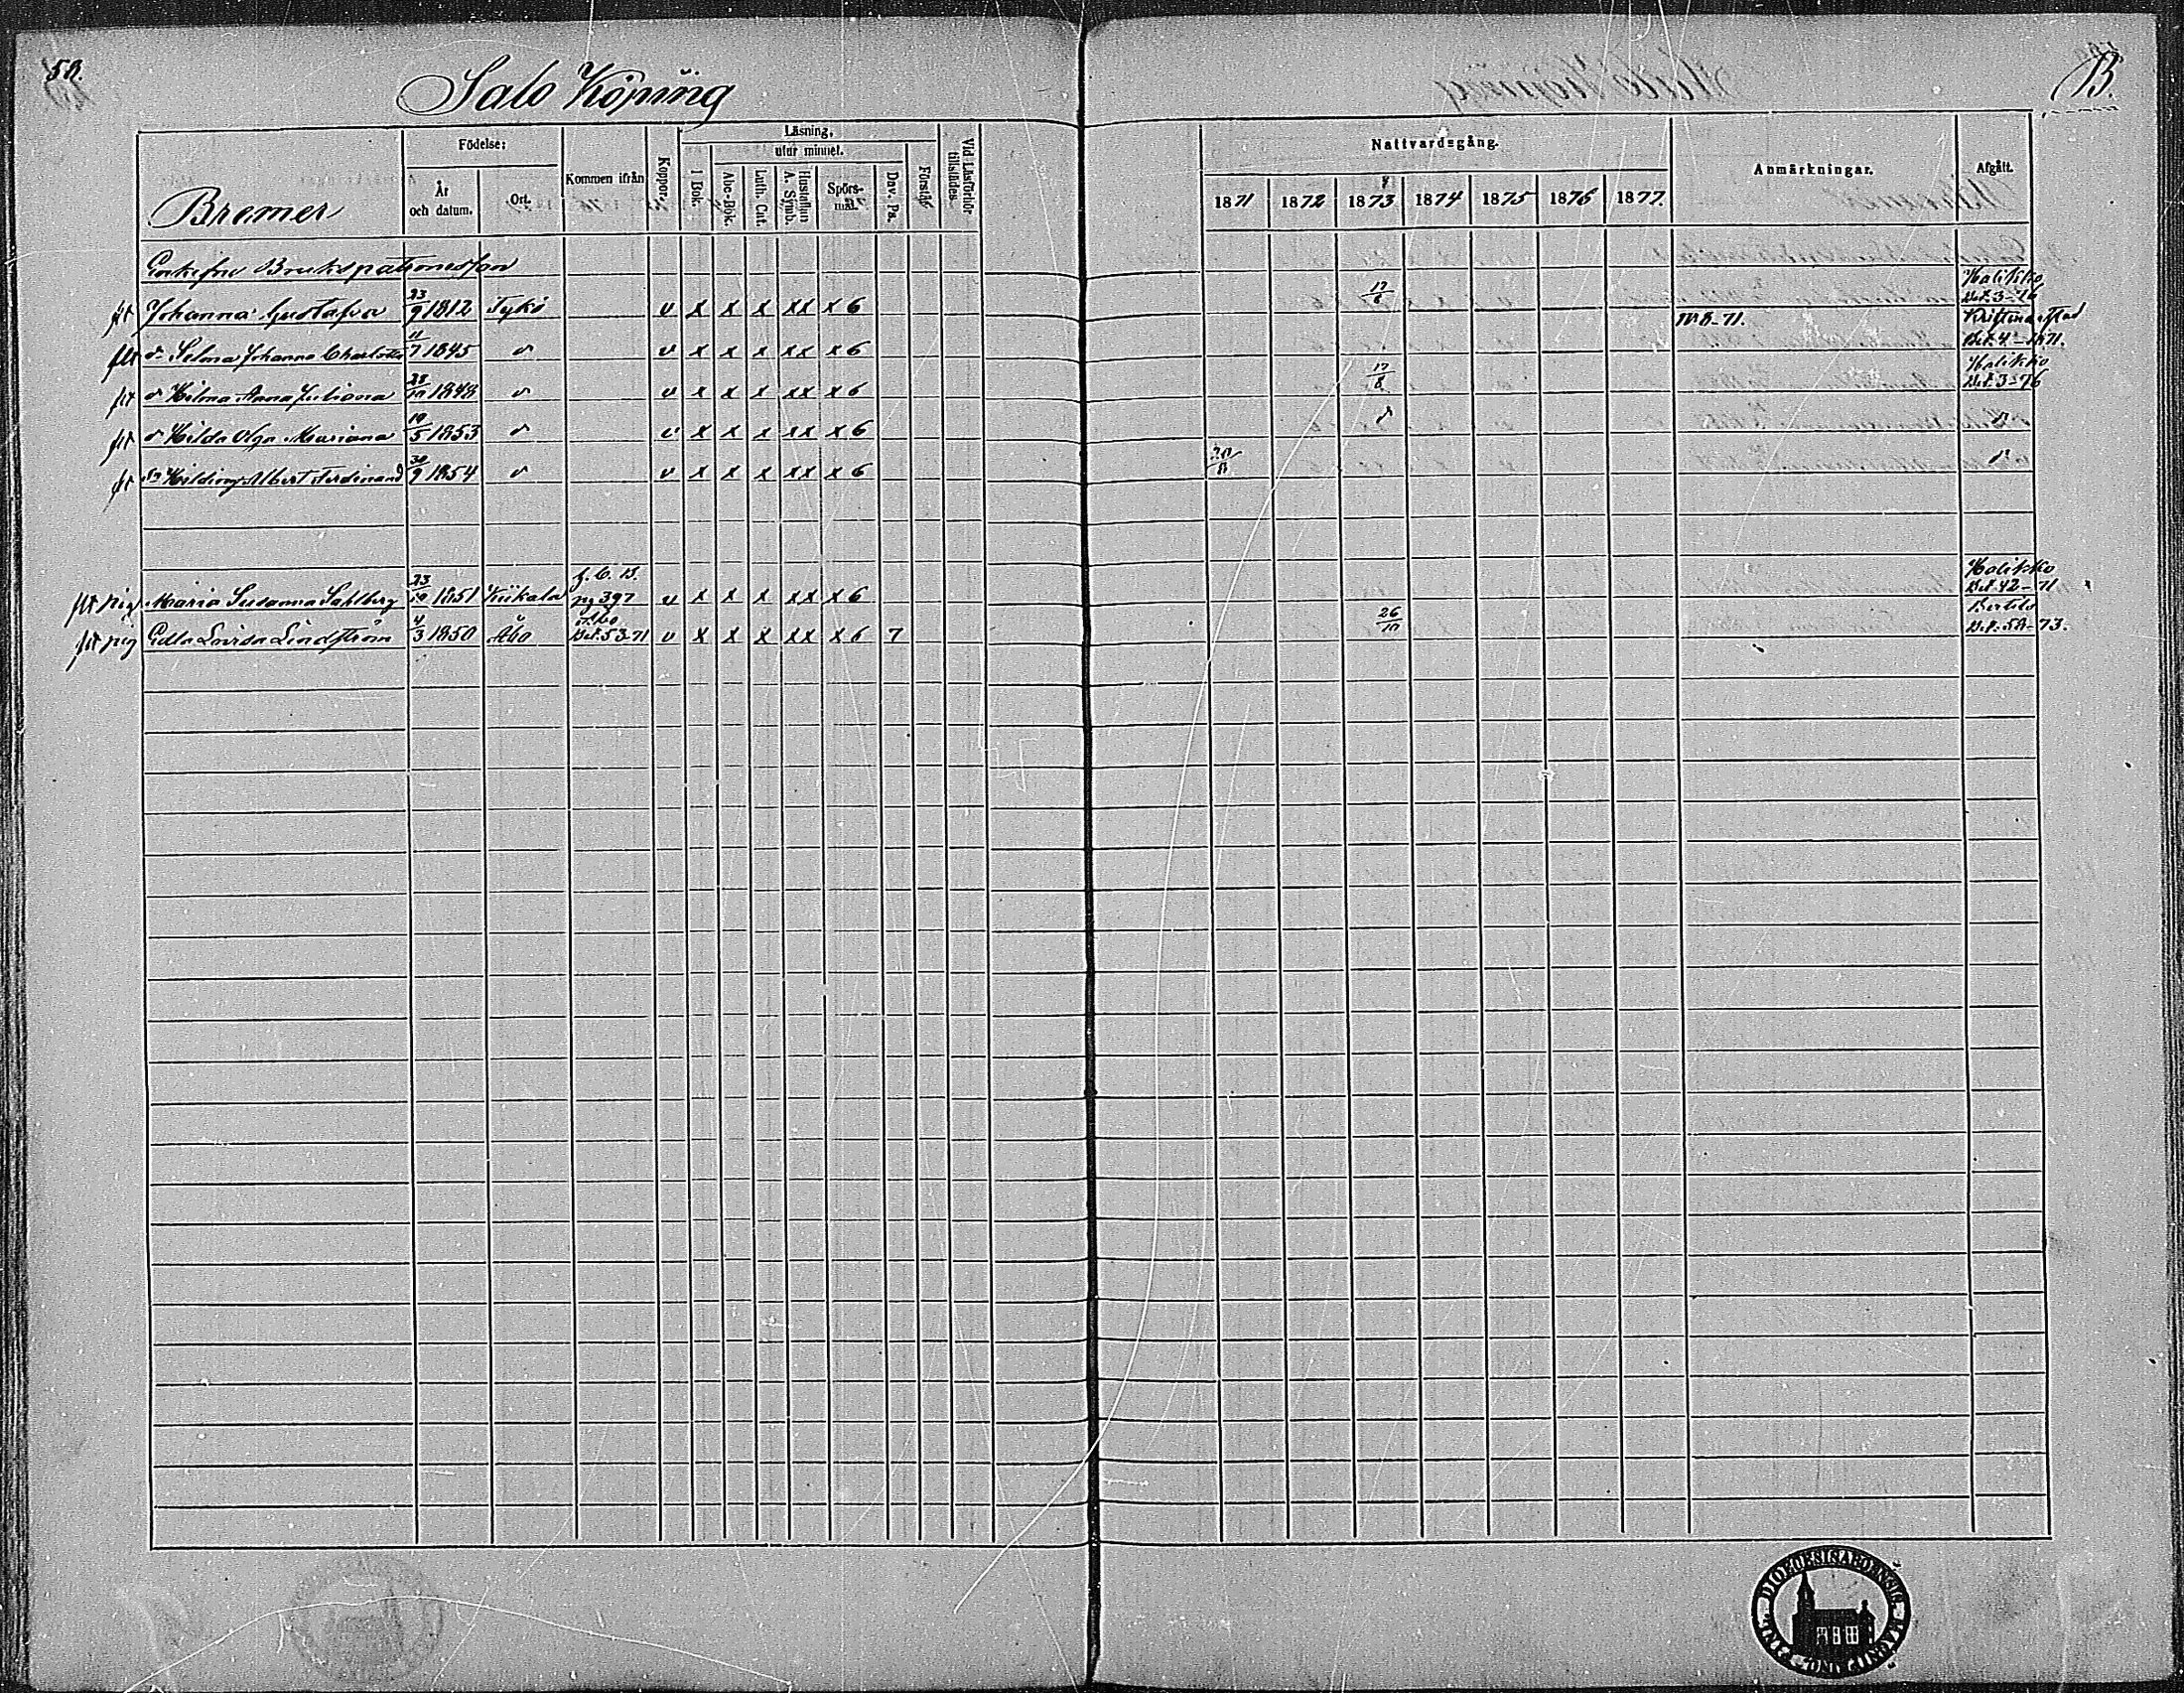 58.
Salo Köping
B.
Bremer
Födelse:
År och datum.
Ort.
Kommen ifrån
Koppor.
Läsning,
I Bok.
utur minnet.
Abc-Bok.
Luth. Cat.
Hustaflan A. Symb.
Spörs-mål.
Dav. Ps.
Förstår
Vid Läsförhör tillstädes.
Nattvardsgång.
1871 1872 1873 1874 1875 1876 1877.
Anmärkningar.
Afgått.
Enkefru Brukspatronessan
Johanna Gustafva 23/9 1812 Tykö v x x x xx x 6 17/8 Halikko Bet. 3-76
dr Selma Johanna Charlotta 11/7 1845 d:o v x x x xx x 6 N 8-71. Kristinestad Bet. 4-1871.
dr Hilma Anna Juliana 28/10 1848 d:o v x x x xx x 6 17/8 Halikko Bet. 3-76
dr Hilda Olga Mariana 10/5 1853 d:o v x x x xx x 6 d:o d:o
sn Hilding Albert Ferdinand 30/9 1854 d:o v x x x xx x 6 20/8 d:o
pig Maria Susanna Sahlberg 23/10 1851 Kiikala f. C. B. pg 397 v x x x xx x 6 Halikko Bet. 42-71
pig Edla Lovisa Lindström 4/3 1850 Åbo Åbo Bet. 53-71 v x x x xx x 6 7 26/10 Bertils Bet. 58-73.